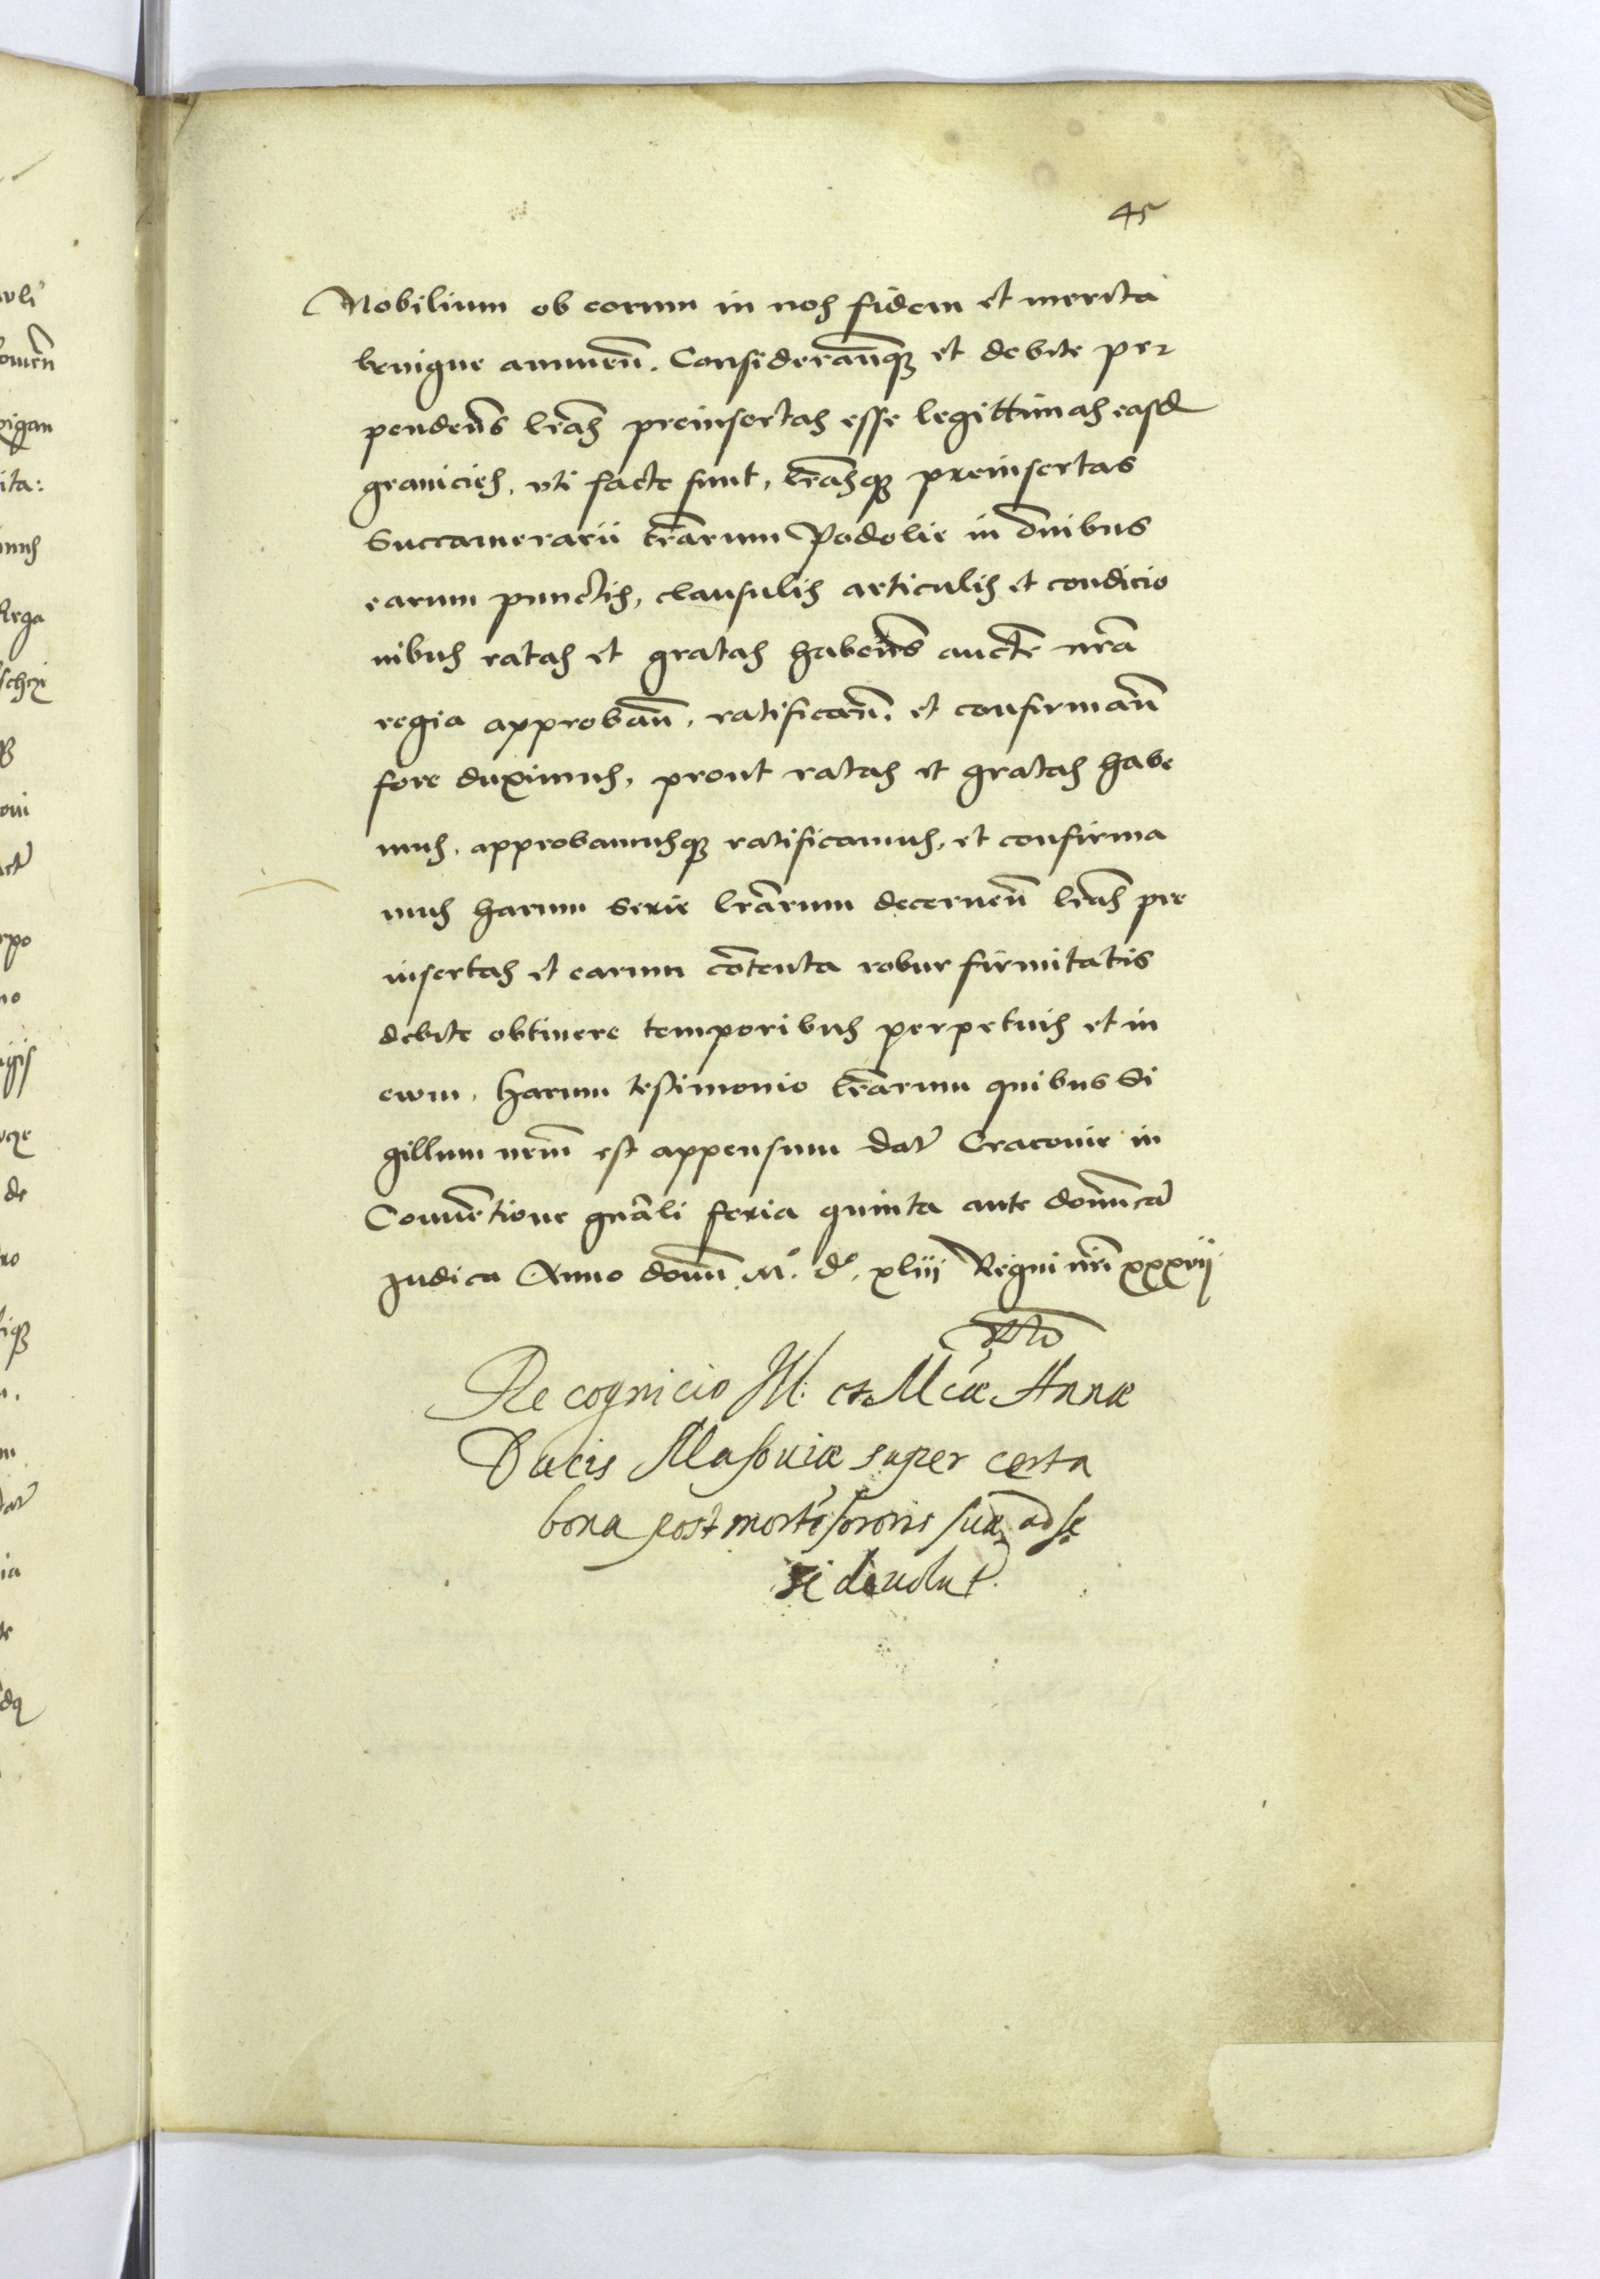 45
Nobilium ob eorum in nos fidem et merita
benigne annuen̄. Consideran̄q₃ et debite per
penden̄s l̄ras preinsertas esse legittimas easd
granicies, vti facte sunt, l̄rasq₃ preinsertas
Succamerarii t̄rarum Podolie in om̄ibus
earum punctis, clausulis articulis et condicio
nibus ratas et gratas haben̄s aucte n̄ra
regia approban̄, ratifican̄. et confirman̄
fore duximus, prout ratas et gratas habe
mus, approbamusq₃ ratificamus, et confirma
mus harum serie l̄rarum decernen̄ l̄ras pre
insertas et earum cōtenta robur firmitatis
debite obtinere temporibus perpetuis et in
ewm, harum testimonio l̄rarum quibus Si
gillum n̄rum est appensum dat̄ Cracouie in
Conuētione gn̄ali feria quinta ante domīcā
Judica Anno domī M.º d.º xliij Regni n̄ri xxxvij
Recognicio Ill: et Mcæ Annæ
Ducis Masouiæ super certa
bona post mortē sororis suæ ad se
devolut.